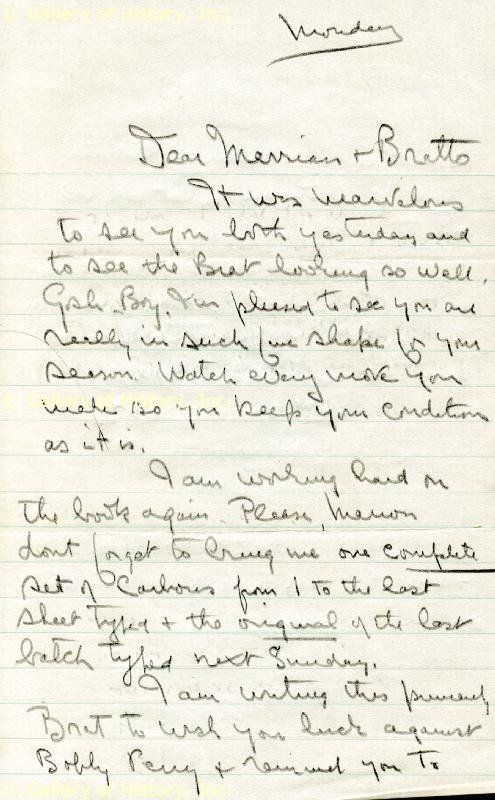 © Gallery of History, Inc.
Monday
Dear Merriam + Bratto
It was marvelous
to see you both yesterday and
to see the Brat looking so well.
Gosh, Boy, I'm pleased to see you are
really in such fine shape for your
season. Watch every move you
make so you keep your condition
as it is.
© Gallery of History, Inc.
I am working hard on
the book again. Please,
dont forget to bring me one complete
set of Carbons from 1 to the last
sheet typed + the original of the last
batch typed next Sunday.
I am writing this primarily
Brat to wish you luck against
Bobby Perry + remind you to
© Gallery of History, Inc.